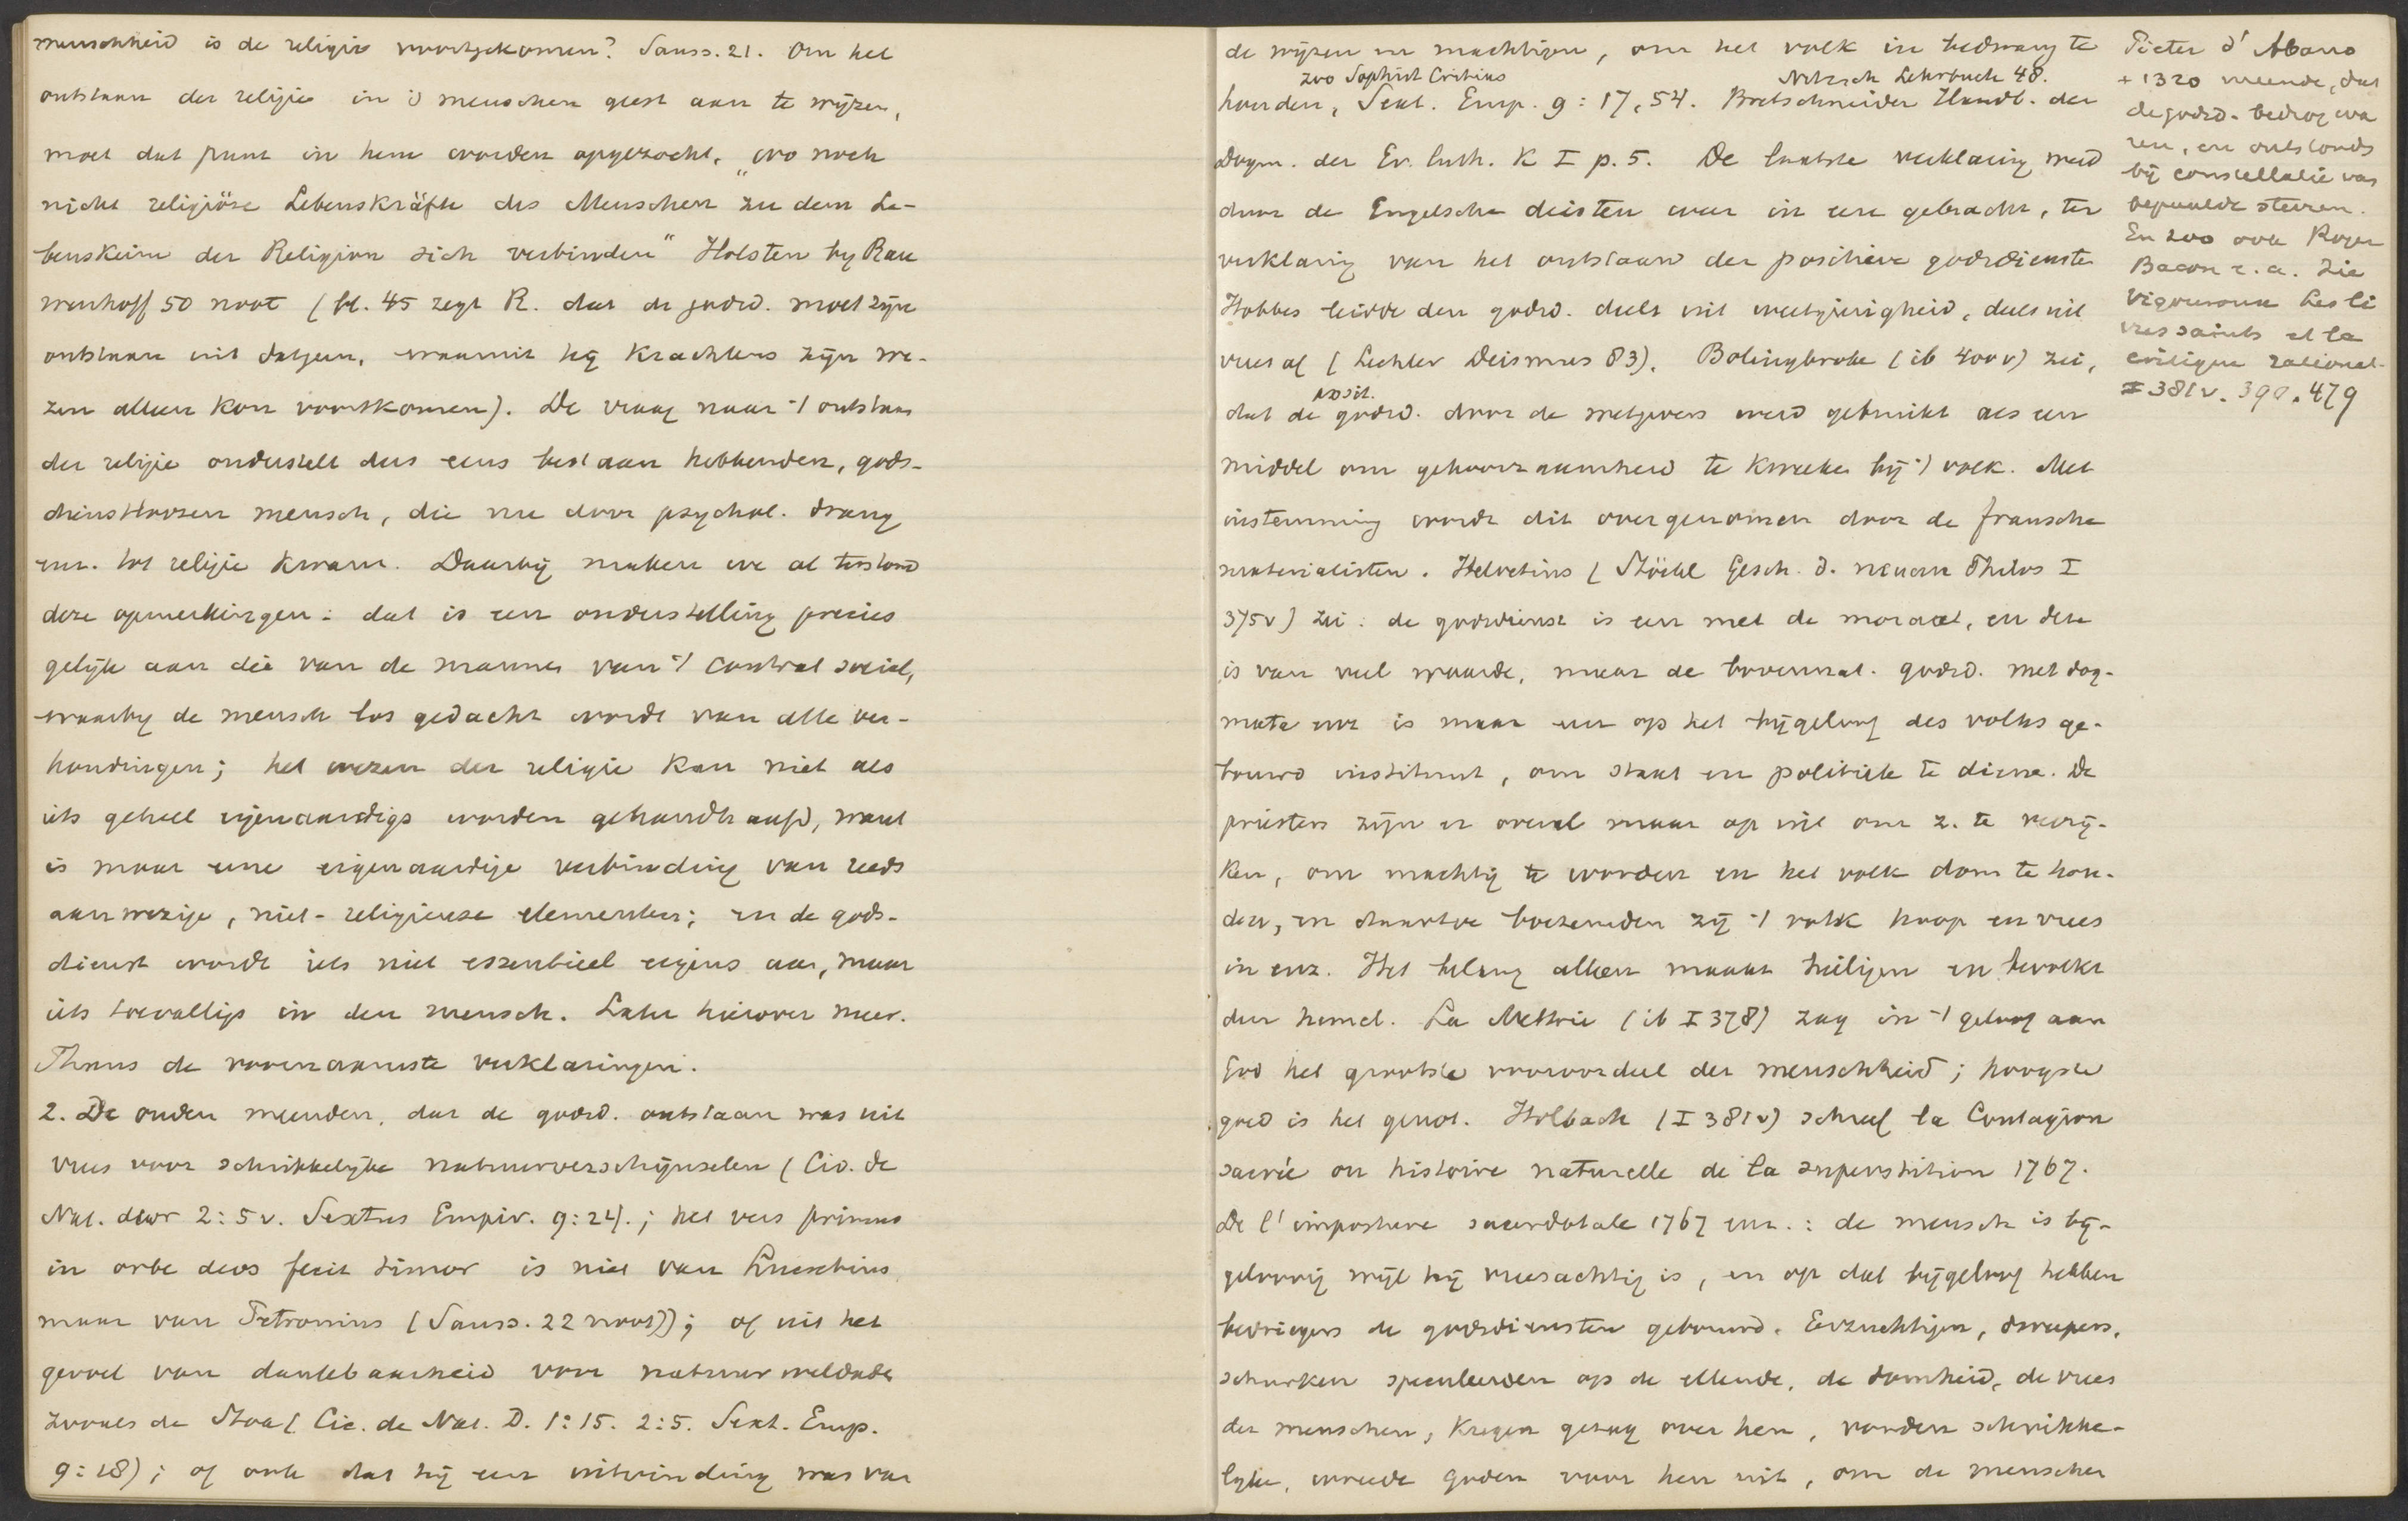 menschheid is de religie voortgekomen? Sauss. 21. Om het
ontstaan der religie in 's menschen geest aan te wijzen,
moet dat punt in hem worden opgezocht, „wo noch
nicht religiöse Lebenskräfte des Menschen zu dem Le-
benskeim der Religion sich verbinden“ Holsten by Rau
wenhoff 50 noot (bl. 45 zegt R. dat de godsd. moet zijn
ontstaan uit datgene, waaruit hij krachtens zijn we-
zen alleen kon voortkomen). De vraag naar 't ontstaan
der religie onderstelt dus eens bestaan hebbenden, gods-
dienstloozen mensch, die nu door psychol. drang
enz. tot religie kwam. Daarbij maken we al terstond
deze opmerkingen: dat is een onderstelling precies
gelijk aan die van de mannen van 't contrat social,
waarbij de mensch los gedacht wordt van alle ver-
houdingen; het wezen der religie kan niet als
iets geheel eigenaardigs worden gehandhaafd, want
is maar eene eigenaardige verbinding van reeds
aanwezige, niet-religieuse elementen; en de gods-
dienst wordt iets niet essentieel eigens aan, maar
iets toevalligs in den mensch. Later hierover meer.
Thans de voornaamste verklaringen.
2. De ouden meenden, dat de godsd. ontstaan was uit
vrees voor schrikkelijke natuurverschijnselen (Cic. de
Nat. deor 2:5v. Sextus Empir. 9:24).; het vers primus
in orbe deos fecit timor is niet van Lucretius,
maar van Petronius (Sauss. 22 noot)); of uit het
gevoel van dankbaarheid voor natuurweldaden
zooals de Stoa (Cic. de Nat. D. 1:15. 2:5. Sext. Emp.
9:18); of ook dat hij een uitvinding was van
de wijzen en machtigen, om het volk in bedwang te
zoo Sophist Critias Nitzsch Lehrbuch 48.
houden, Sext. Emp. 9:17, 54. Bretschneider Handb. der
Dogm. der Ev. luth. K I p. 5. De laatste verklaring werd
door de Engelsche deisten weer in eere gebracht, ter
verklaring van het ontstaan der positieve godsdiensten
Hobbes leidde den godsd. deels uit weetgierigheid, deels uit
vrees af (Lechler Deismus 83). Bolingbroke (ib 400v) zei,
posit.
dat de godsd. door de wetgevers werd gebruikt als een
middel om gehoorzaamheid te kweeken bij 't volk. Met
instemming wordt dit overgenomen door de fransche
materialisten. Helvetius (Stöckl Gesch. d. neuern Philos I
375v) zei: de godsdienst is een met de moraal, en deze
is van veel waarde, maar de bovennat. godsd. met dog-
mata enz is maar een op het bijgeloof des volks ge-
bouwd instituut, om staat en politiek te dienen. De
priesters zijn er overal maar op uit om z. te verrij-
ken, om machtig te worden en het volk dom te hou-
den, en daartoe boezemden zij 't volk hoop en vrees
in enz. Het belang alleen maakt heiligen en bevolkt
den hemel. La Mettrie (ib I 378) zag in 't geloof aan
God het grootste vooroordeel der menschheid; hoogste
goed is het genot. Holbach (I 381v) schreef la Contagion
sacrée ou histoire naturelle de la superstition 1767.
De l'imposture sacerdotale 1767 enz.: de mensch is bij-
geloovig wijl hij vreesachtig is, en op dat bijgeloof hebben
bedriegers de godsdiensten gebouwd. Eerzuchtigen, dweepers,
schurken speculeerden op de ellende, de domheid, de vrees
der menschen, kregen gezag over hen, vonden schrikke-
lijke, wreede goden voor hen uit, om de menschen
Pieter d'Abano
+ 1320 meende, dat
de godsd. bedrog wa
ren, en ontstonds
bij constellatie van
bepaalde sterren.
En zoo ook Roger
Bacon e.a. Zie
Vigouroux Les li
vres saints et la
critique rational.
I 381v. 390. 479